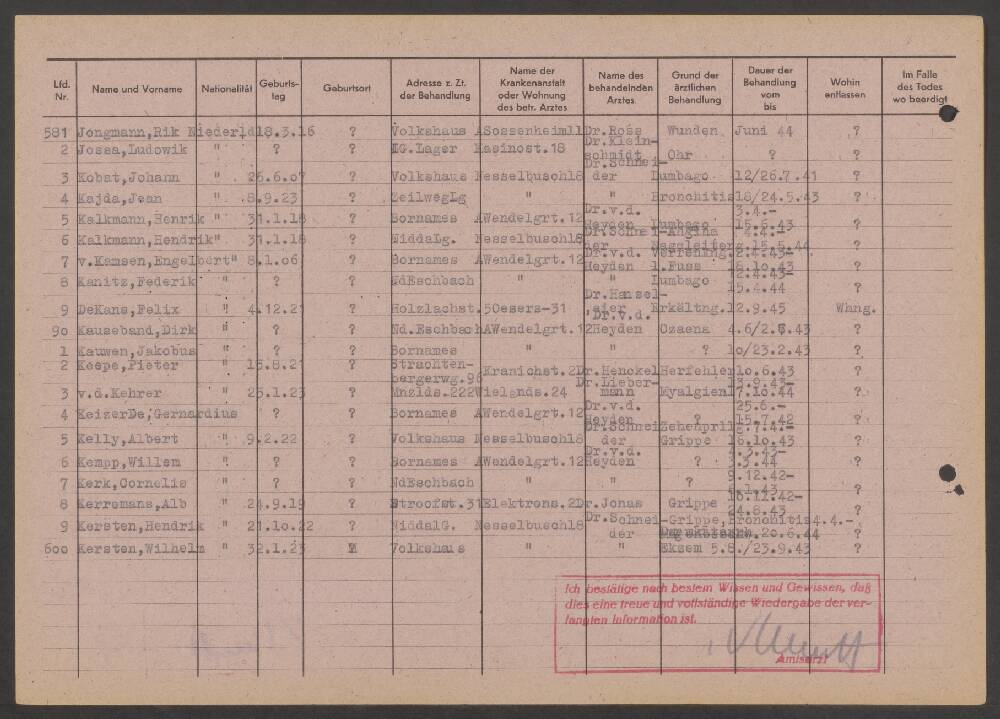 Lfd. Nr. Name und Vorname Nationalität Geburtstag Geburtsort Adresse z. Zt. der Behandlung Name der Krankenanstalt oder Wohnung des betr. Arztes Name des behandelnden Arztes Grund der ärztlichen Behandlung Dauer der Behandlung vom bis Wohin entlassen Im Falle des Todes wo beerdigt
581 Jongmann,Rik Niederld18.3.16 ? Volkshaus ASossenheimllDr.Ross Wunden Juni 44 ?
2 Jossa,Ludowik " ? ? IG.Lager Kasinost.18 Dr.Klein-schmidt Ohr ? ?
3 Kobat,Johann " 26.6.07 ? Volkshaus Nesselbusch18 Dr.Schnei-der Lumbago 12/26.7.41 ?
4 Kajda,Jean " 8.9.23 ? ZeilwegLg " " Bronchitis18/24.5.43 ?
5 Kalkmann,Henrik " 31.1.18 ? Bornames AWendelgrt.12 Dr.v.d. Heyden Lumbago 3.4.- 15.6.43 ?
6 Kalkmann,Hendrik" 31.1.18 ? NiddaLg. Nesselbusch18 Angina ?
7 v.Kamsen,Engelbert" 8.1.06 ? Bornames AWendelgrt.12 Dr.v.d. Heyden l.Fuss ?
8 Kanitz,Federik " ? ? NdEschbach " " Lumbago 15.4.44 ?
9 DeKans,Felix " 4.12.21 ? Holzlachst.5Oesers-31 Dr.Hansel- Erkältng.12.9.45 Whng.
90 Kauseband,Dirk " ? ? Nd.EschbachAWendelgrt.12 Dr.v.d. Heyden Ozaena 4.6/2.8.43 ?
1 Kauwen,Jakobus " ? ? Bornames " " ? 10/23.2.43 ?
2 Keepe,Pieter " 15.8.21 ? Strachten-bergerwg.96 Kranichst.2Dr.Henckel Herfehler10.6.43 ?
3 v.d.Kehrer " 25.1.23 ? Mnzlds.222Wielands.24 Dr.Lieber-mann Myalgien 3.9.43- 17.10.44 ?
4 KeizerDe,Gernardius ? ? Bornames AWendelgrt.12 Dr.v.d. Heyden ? 25.6.- 15.7.42 ?
5 Kelly,Albert " 9.2.22 ? Volkshaus Nesselbusch18 Dr.Schnei der Zehenprllg.7.4.- Grippe 16.10.43 ?
6 Kempp,Willem " ? ? Bornames AWendelgrt.12 Dr.v.d. Heyden ? 4.3.43- 3.3.44 ?
7 Kerk,Cornelis " ? ? NdEschbach " " ? 9.12.42- ?
8 Kerremans,Alb " 24.9.19 ? Stroofst.31Elektrons.2Dr.Jonas Grippe 24.8.43 ?
9 Kersten,Hendrik " 21.10.22 ? NiddalG. Nesselbusch18 Dr.Schnei-der Grippe,Bronchitis4.4.- 20.6.44 ?
600 Kersten,Wilhelm " 32.1.23 ? Volkshaus " " Ekzem 5.8./23.9.43 ?
Ich bestätige nach bestem Wissen und Gewissen, daß
dies eine treue und vollständige Wiedergabe der ver-
langten Information ist.
Amtsarzt